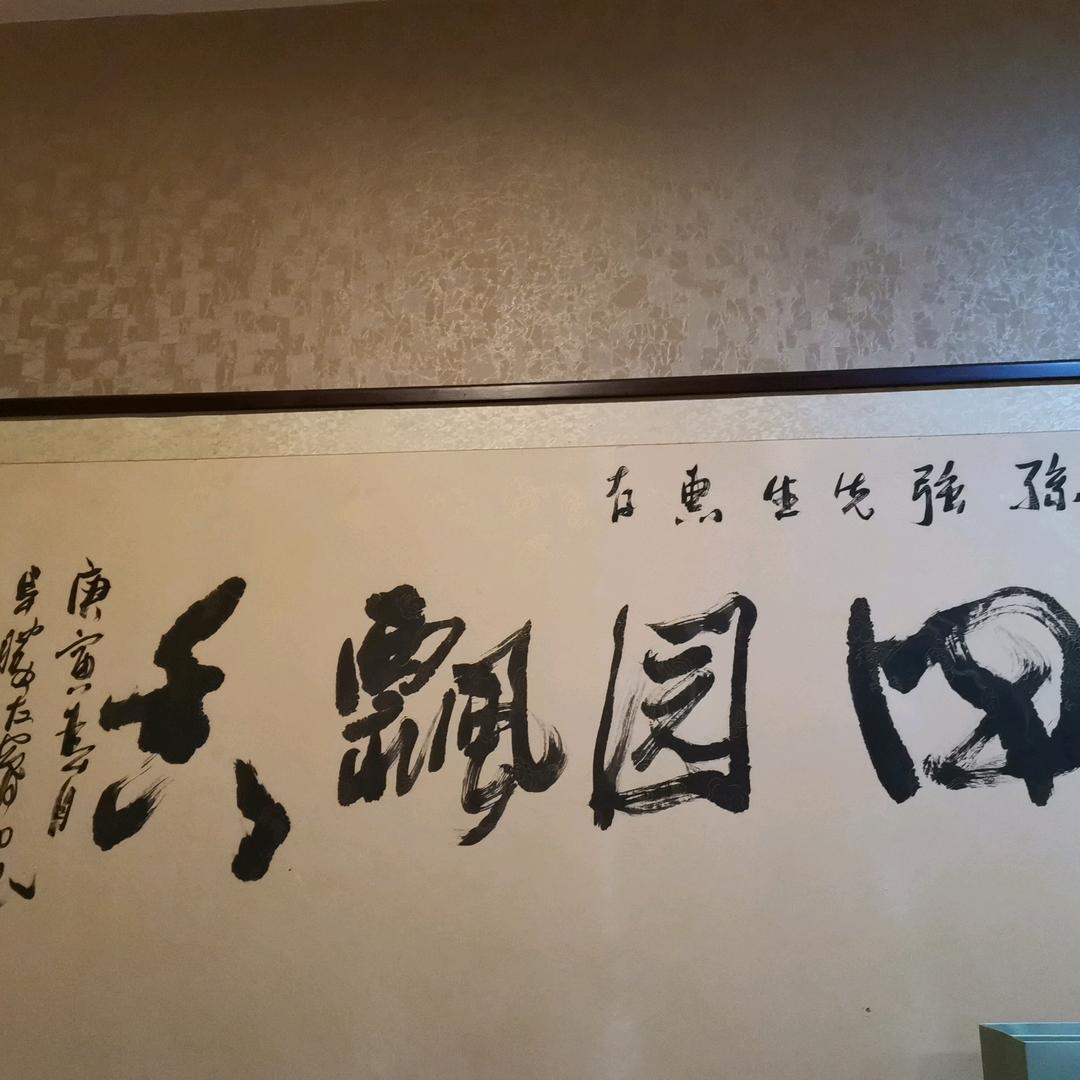 孫強先生惠存
田园飄香
庚寅春月